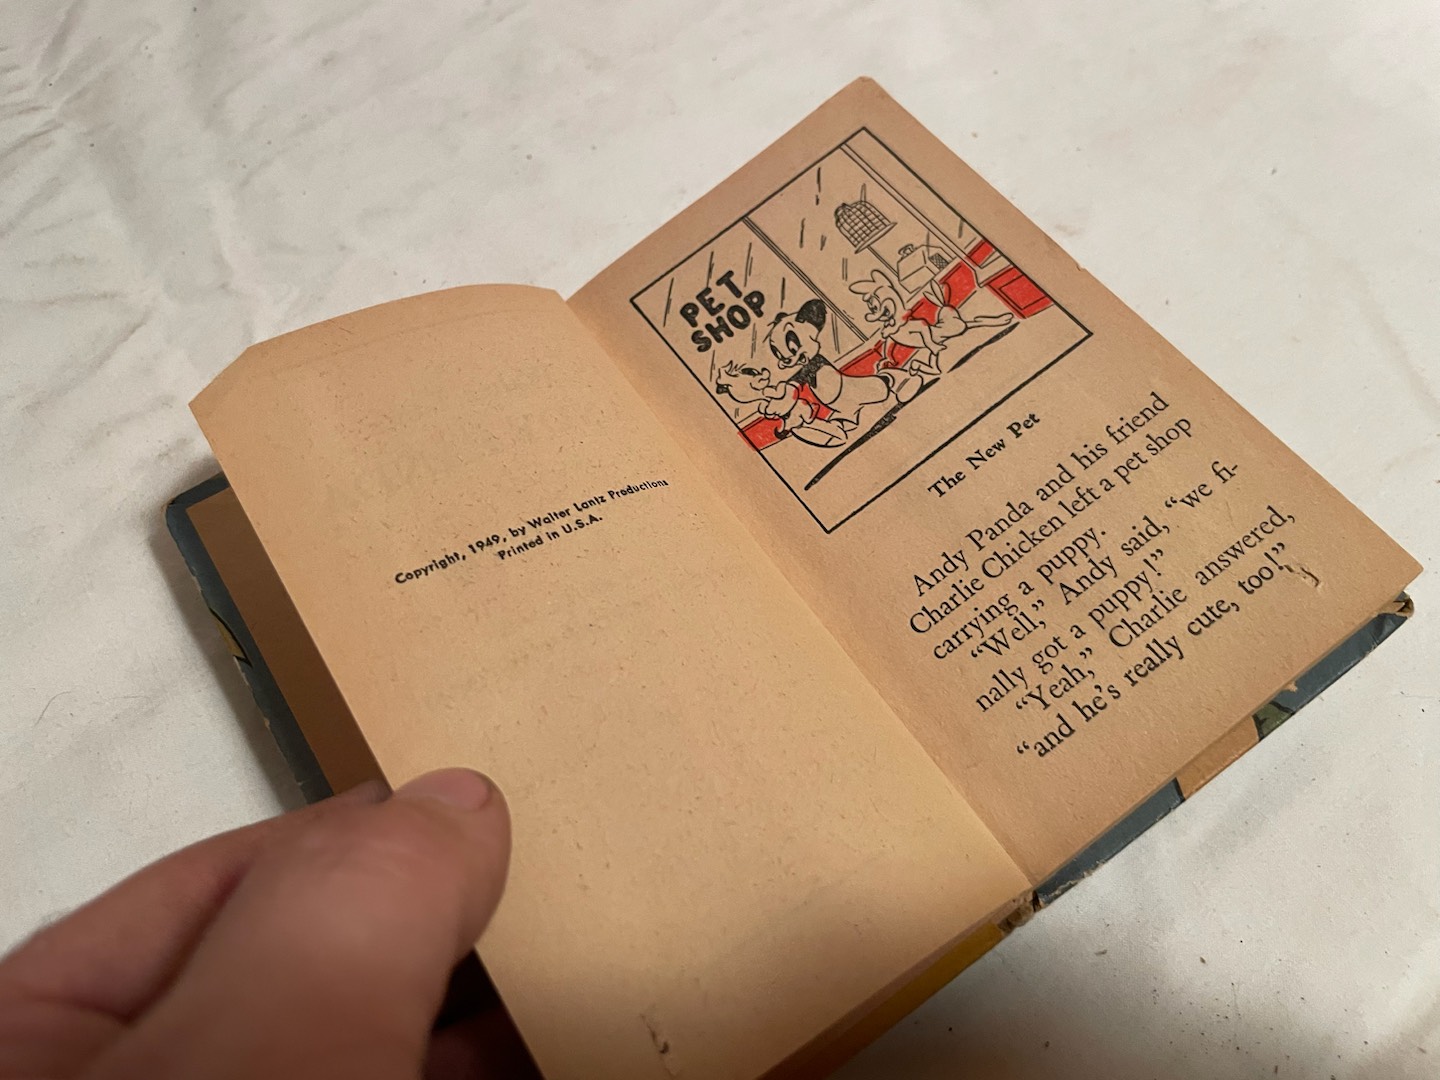 Copyright, 1949, by Walter Lantz Productions
Printed in U.S.A.
PET
SHOP
The New Pet
Andy Panda and his friend
Charlie Chicken left a pet shop
carrying a puppy.
“Well,” Andy said, “we fi-
nally got a puppy!”
“Yeah,” Charlie answered,
“and he’s really cute, too!”